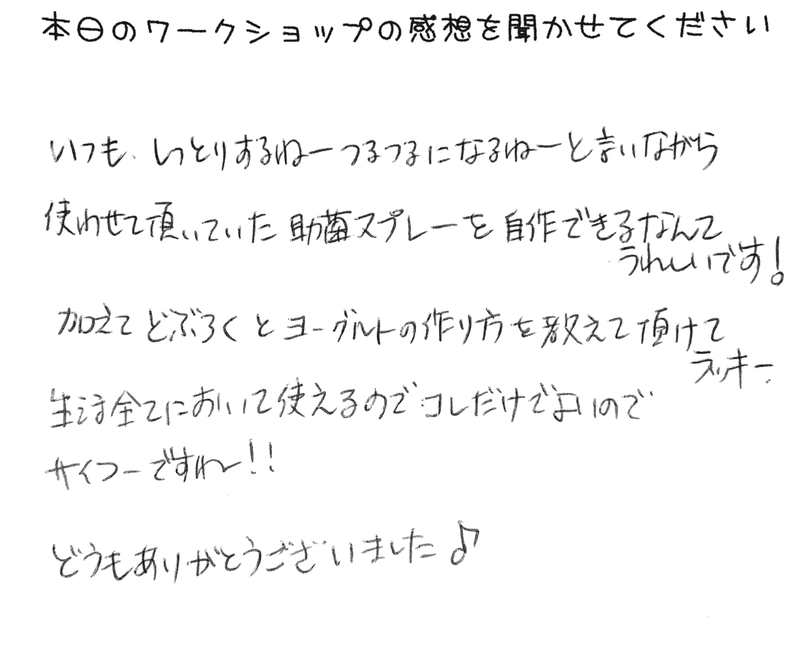 本日のワークショップの感想を聞かせてください
いつも、しっとりするねーつるつるになるねーと言いながら
使わせて頂いていた 助菌スプレーを 自作できるなんて
うれしいです!
加えて どぶろくとヨーグルトの作り方を教えて頂けて
ラッキー.
生活全てにおいて使えるので コレだけで良いので
サイコーですねー!!
どうもありがとうございました♪